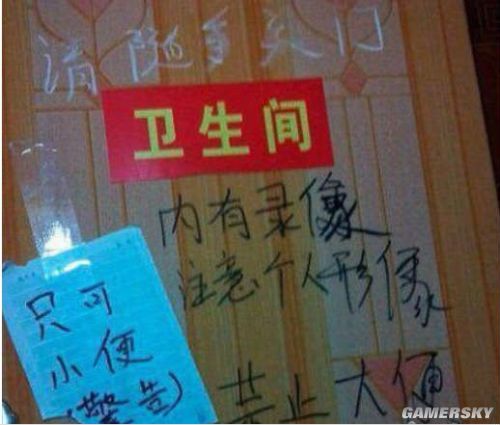 清随手关门
卫生间
内有录像
注意个人形像
只可
小便
(警告)
禁止大便
GAMERSKY